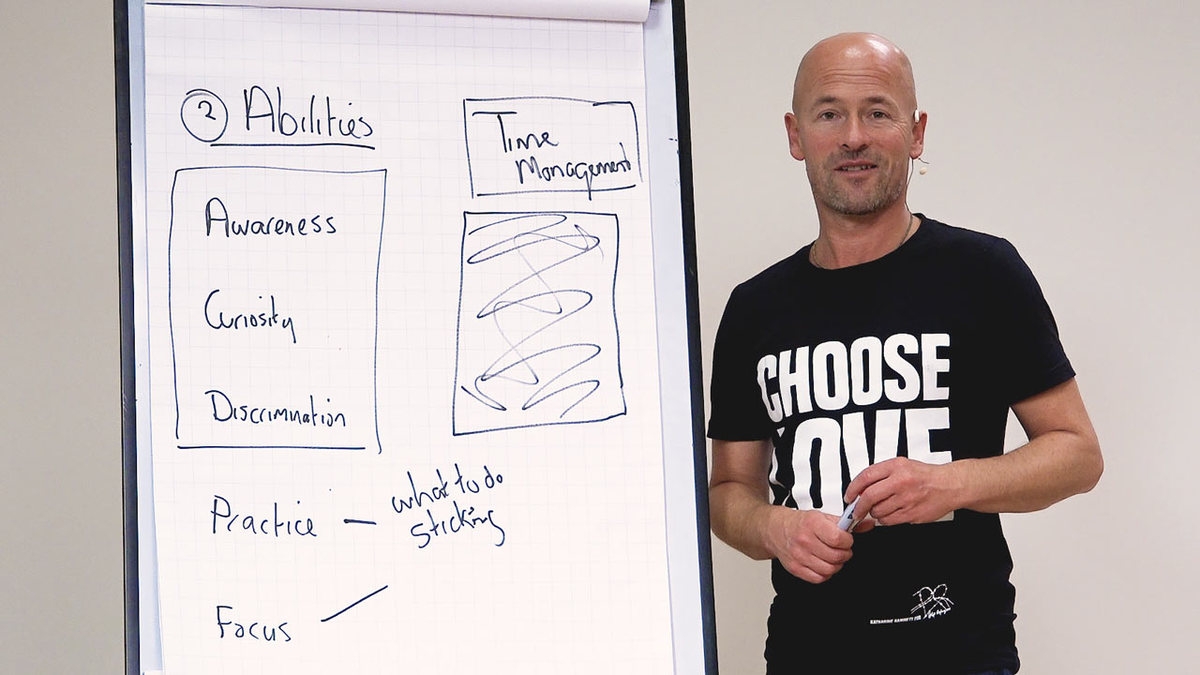 2 Abilities
Time
Management
Awareness
Curiosity
Discrimination
Practice — what to do
sticking
Focus
CHOOSE
LOVE
KATHARINE HAMNETT FOR